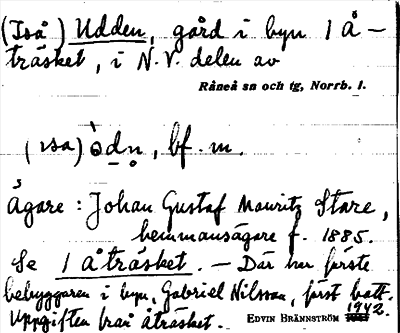 (Iså) Udden, gård i byn 1 Å-
träsket, i N.V. delen av
Råneå sn och tg, Norrb. l.
(ısa) òdṇ, bf. m.
Ägare: Johan Gustaf Mauritz Stare,
hemmansägare f. 1885.
Se 1 Åträsket. – Där har förste
bebyggaren i byn, Gabriel Nilsson, först bott.
Uppgiften från Åträsket.
EDVIN BRÄNNSTRÖM 1942.